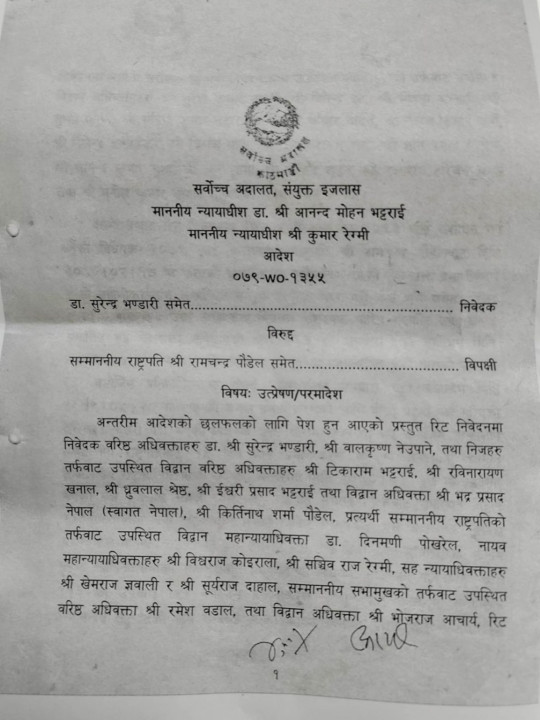 सर्वोच्च अदालत
काठमाडौं
सर्वोच्च अदालत, संयुक्त इजलास
माननीय न्यायाधीश डा. श्री आनन्द मोहन भट्टराई
माननीय न्यायाधीश श्री कुमार रेग्मी
आदेश
०७९-WO-१३५५
डा. सुरेन्द्र भण्डारी समेत.................................................................. निवेदक
विरुद्ध
सम्माननीय राष्ट्रपति श्री रामचन्द्र पौडेल समेत.......................................... विपक्षी
विषयः उत्प्रेषण/परमादेश
अन्तरीम आदेशको छलफलको लागि पेश हुन आएको प्रस्तुत रिट निवेदनमा
निवेदक वरिष्ठ अधिवक्ताहरु डा. श्री सुरेन्द्र भण्डारी, श्री वालकृष्ण नेउपाने, तथा निजहरु
तर्फवाट उपस्थित विद्वान वरिष्ठ अधिवक्ताहरु श्री टिकाराम भट्टराई, श्री रविनारायण
खनाल, श्री ध्रुवलाल श्रेष्ठ, श्री ईश्वरी प्रसाद भट्टराई तथा विद्वान अधिवक्ता श्री भद्र प्रसाद
नेपाल (स्वागत नेपाल), श्री किर्तिनाथ शर्मा पौडेल, प्रत्यर्थी सम्माननीय राष्ट्रपतिको
तर्फवाट उपस्थित विद्वान महान्यायाधिवक्ता डा. दिनमणी पोखरेल, नायव
महान्यायाधिवक्ताहरु श्री विश्वराज कोइराला, श्री सञ्जिव राज रेग्मी, सह न्यायाधिवक्ताहरु
श्री खेमराज ज्ञवाली र श्री सूर्यराज दाहाल, सम्माननीय सभामुखको तर्फवाट उपस्थित
वरिष्ठ अधिवक्ता श्री रमेश वडाल, तथा विद्वान अधिवक्ता श्री भोजराज आचार्य, रिट
१